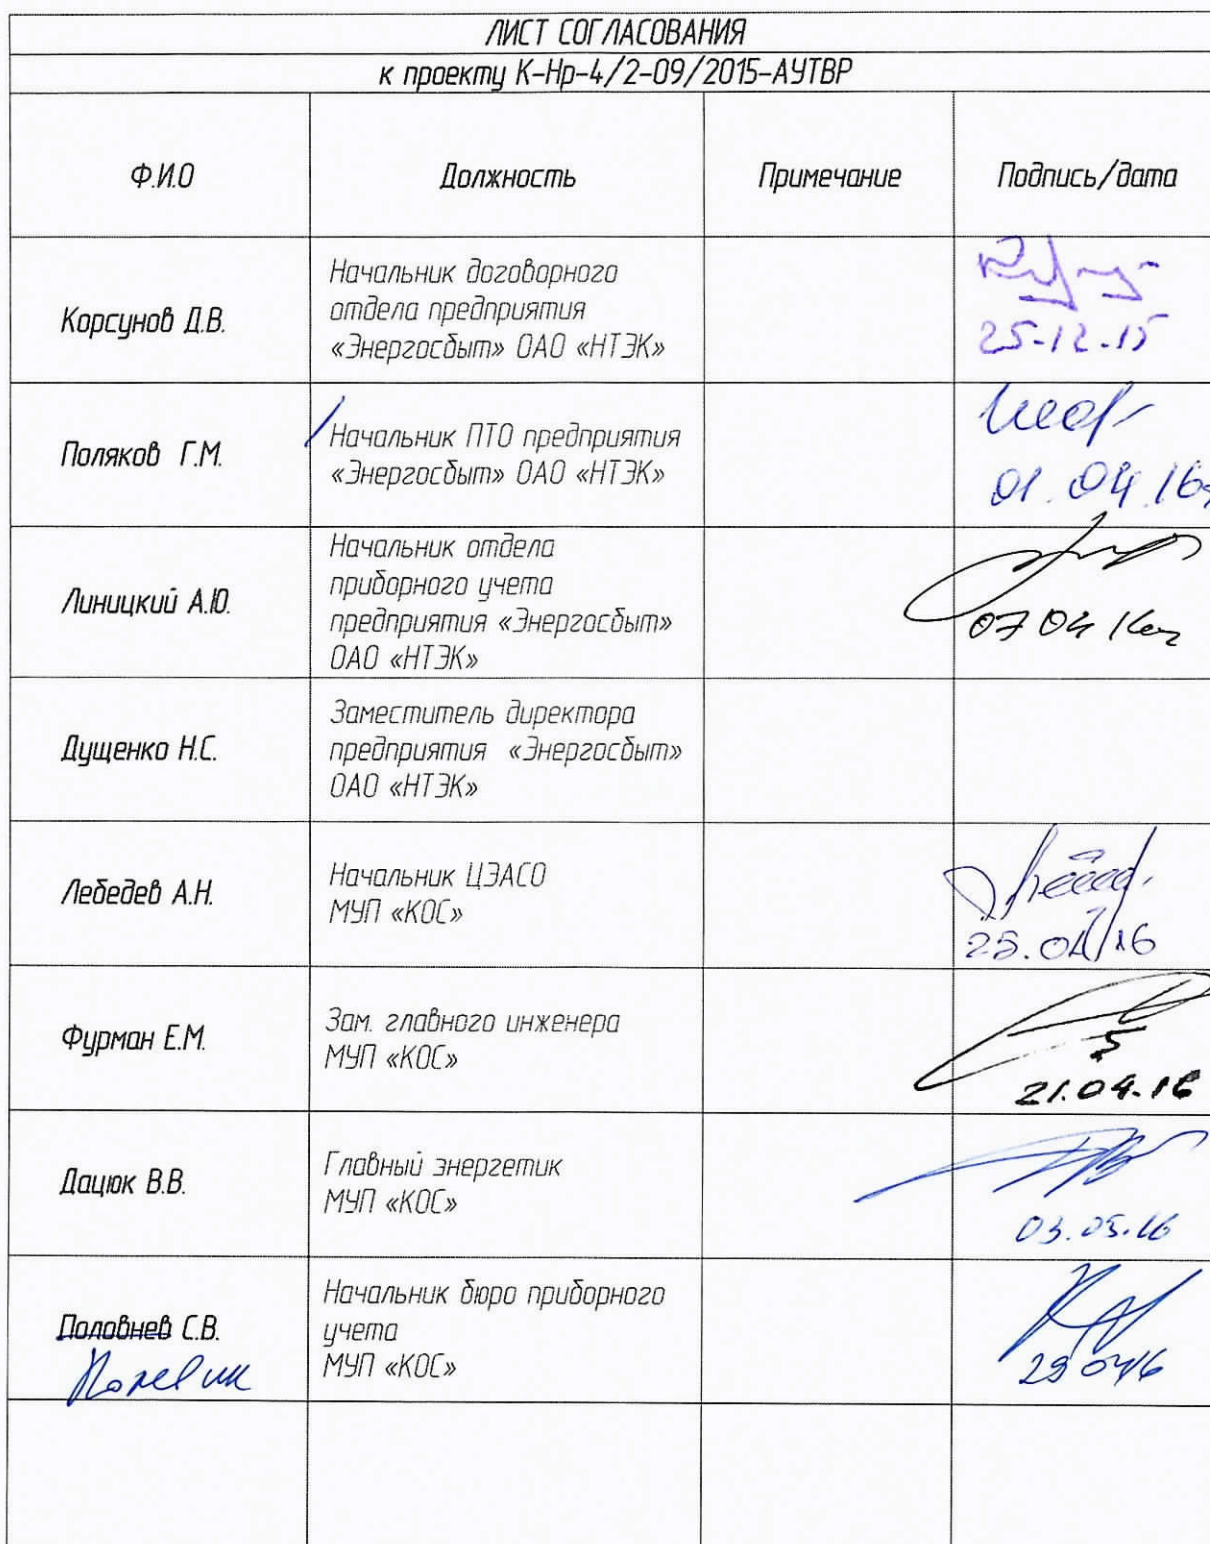 ЛИСТ СОГЛАСОВАНИЯ
к проекту К-Нр-4/2-09/2015-АУТВР
Ф.И.О
Должность
Примечание
Подпись/дата
Корсунов Д.В.
Начальник договорного
отдела предприятия
«Энергосбыт» ОАО «НТЭК»
25-12-15
Поляков Г.М.
Начальник ПТО предприятия
«Энергосбыт» ОАО «НТЭК»
01.04.16
Линицкий А.Ю.
Начальник отдела
приборного учета
предприятия «Энергосбыт»
ОАО «НТЭК»
07 04 16
Дущенко Н.С.
Заместитель директора
предприятия «Энергосбыт»
ОАО «НТЭК»
Лебедев А.Н.
Начальник ЦЭАСО
МУП «КОС»
25.04.16
Фурман Е.М.
Зам. главного инженера
МУП «КОС»
21.04.16
Дацюк В.В.
Главный энергетик
МУП «КОС»
03.05.16
Половнев С.В.
Начальник бюро приборного
учета
МУП «КОС»
29 04 16